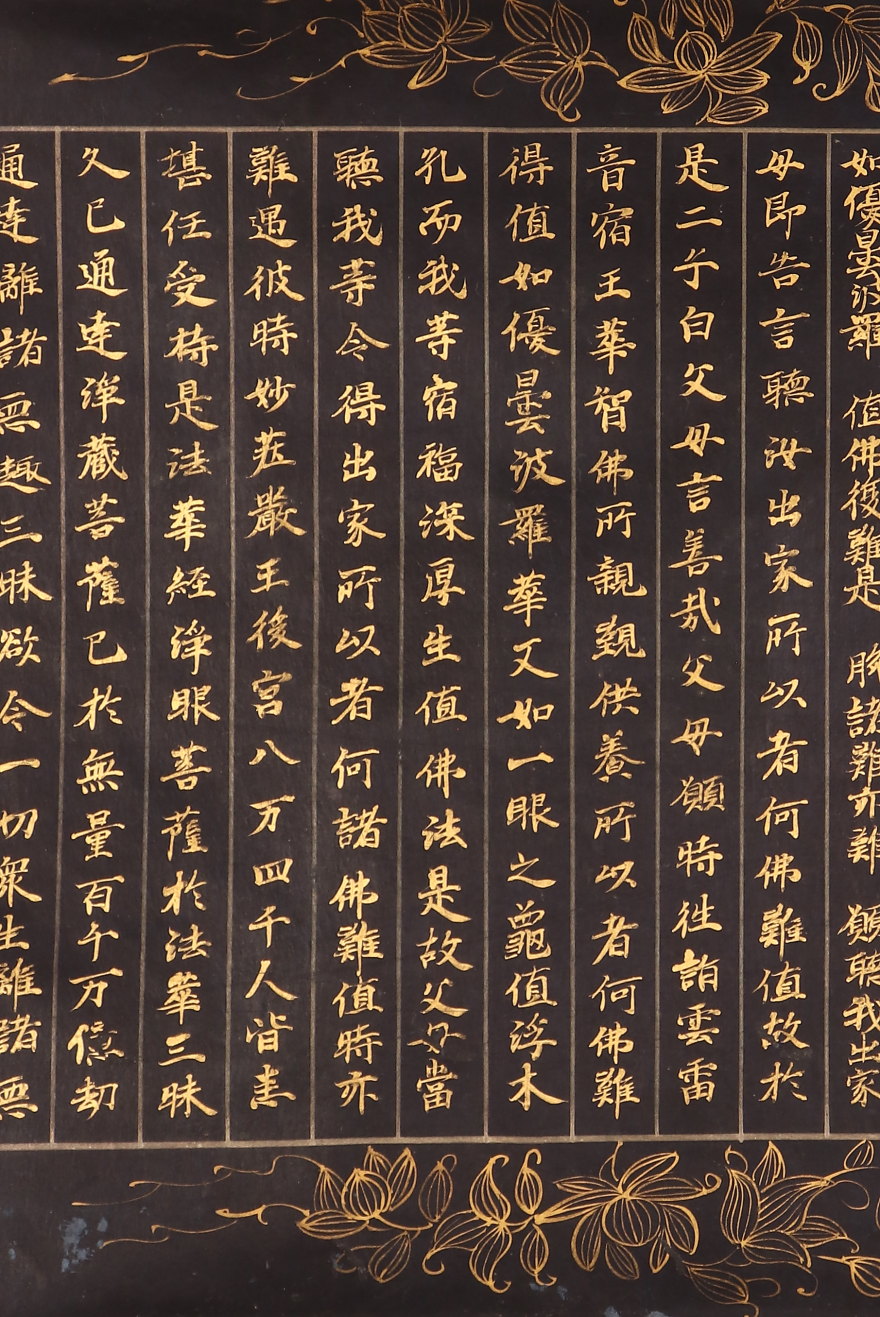 如優曇波羅 值佛復難是 脫諸難亦難 願聽我出家
母即告言聽汝出家所以者何佛難值故於
是二子白父母言善哉父母願時往詣雲雷
音宿王華智佛所親覲供養所以者何佛難
得值如優曇波羅華又如一眼之龜值浮木
孔而我等宿福深厚生值佛法是故父母當
聽我等令得出家所以者何諸佛難值時亦
難遇彼時妙莊嚴王後宮八万四千人皆悉
堪任受持是法華經淨眼菩薩於法華三昧
久已通達淨藏菩薩已於無量百千万億劫
通達離諸惡趣三昧欲令一切衆生離諸惡